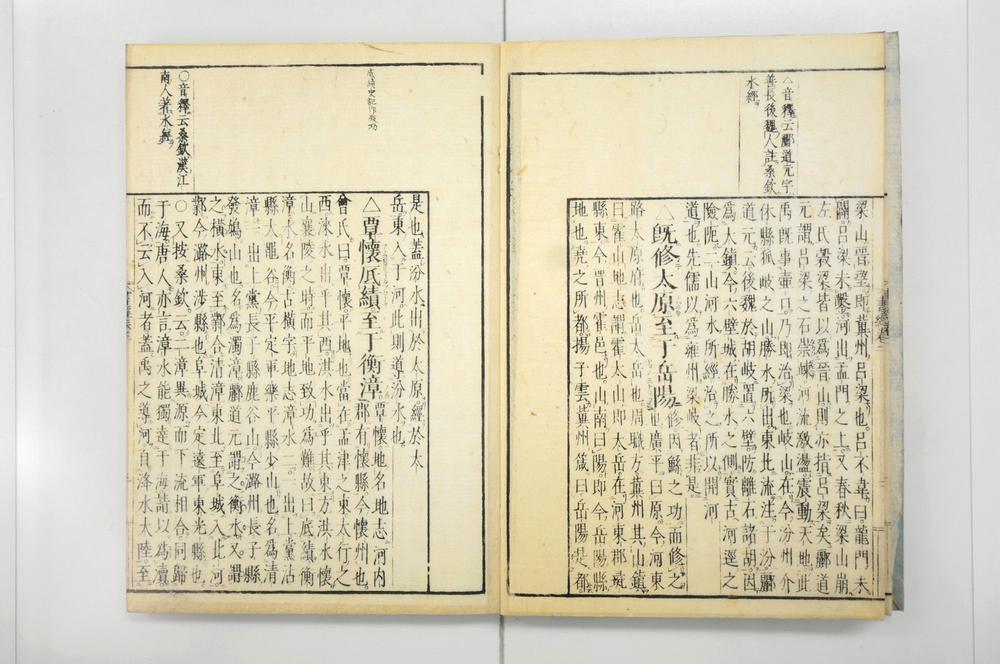 △音釋云酈道元字
善長後魏人註桑欽
水經
梁山晉望即冀州呂梁也呂不韋曰龍門未
闢呂梁未鑿河出孟門之上又春秋梁山崩
左氏穀梁皆以為晉山則亦指呂梁矣酈道
元謂呂梁之石崇竦河流激盪震動天地此
禹既事壺口乃即治梁也岐山在今汾州介
休縣狐岐之山勝水所出東北流注于汾酈
道元云後魏於胡岐置六壁防離石諸胡因
為大鎮今六壁城在勝水之側實古河逕之
險阨二山河水所經治之所以開河
道也先儒以為雍州梁岐者非是
△既修太原至于岳陽修因鯀之功而修之
也廣平曰原今河東
路太原府也岳太岳也周職方冀州其山鎮
曰霍山地志謂霍太山即太岳在河東郡彘
縣東今晉州霍邑也山南曰陽即今岳陽縣
地也堯之所都揚子雲冀州箴曰岳陽是都
底績史記作致功
○音釋云桑欽漢江
南人著水經
是也蓋汾水出於太原經於太
岳東入于河此則導汾水也
△覃懷底績至于衡漳覃懷地名地志河內
郡有懷縣今懷州也
曾氏曰覃懷平地也當在孟津之東太行之
西淶水出乎其西淇水出乎其東方洪水懷
山襄陵之時而平地致功為難故曰底績衡
漳水名衡古橫字地志漳水二一出上黨沾
縣大黽谷今平定軍樂平縣少山也名為清
漳一出上黨長子縣鹿谷山今潞州長子縣
發鳩山也名為濁漳酈道元謂之衡水又謂
之橫水東至鄴合清漳東北至阜城入北河
鄴今潞州涉縣也阜城今定遠軍東光縣也
○又按桑欽云二漳異源而下流相合同歸
于海唐人亦言漳水能獨達于海請以為瀆
而不云入河者蓋禹之導河自洚水大陸至